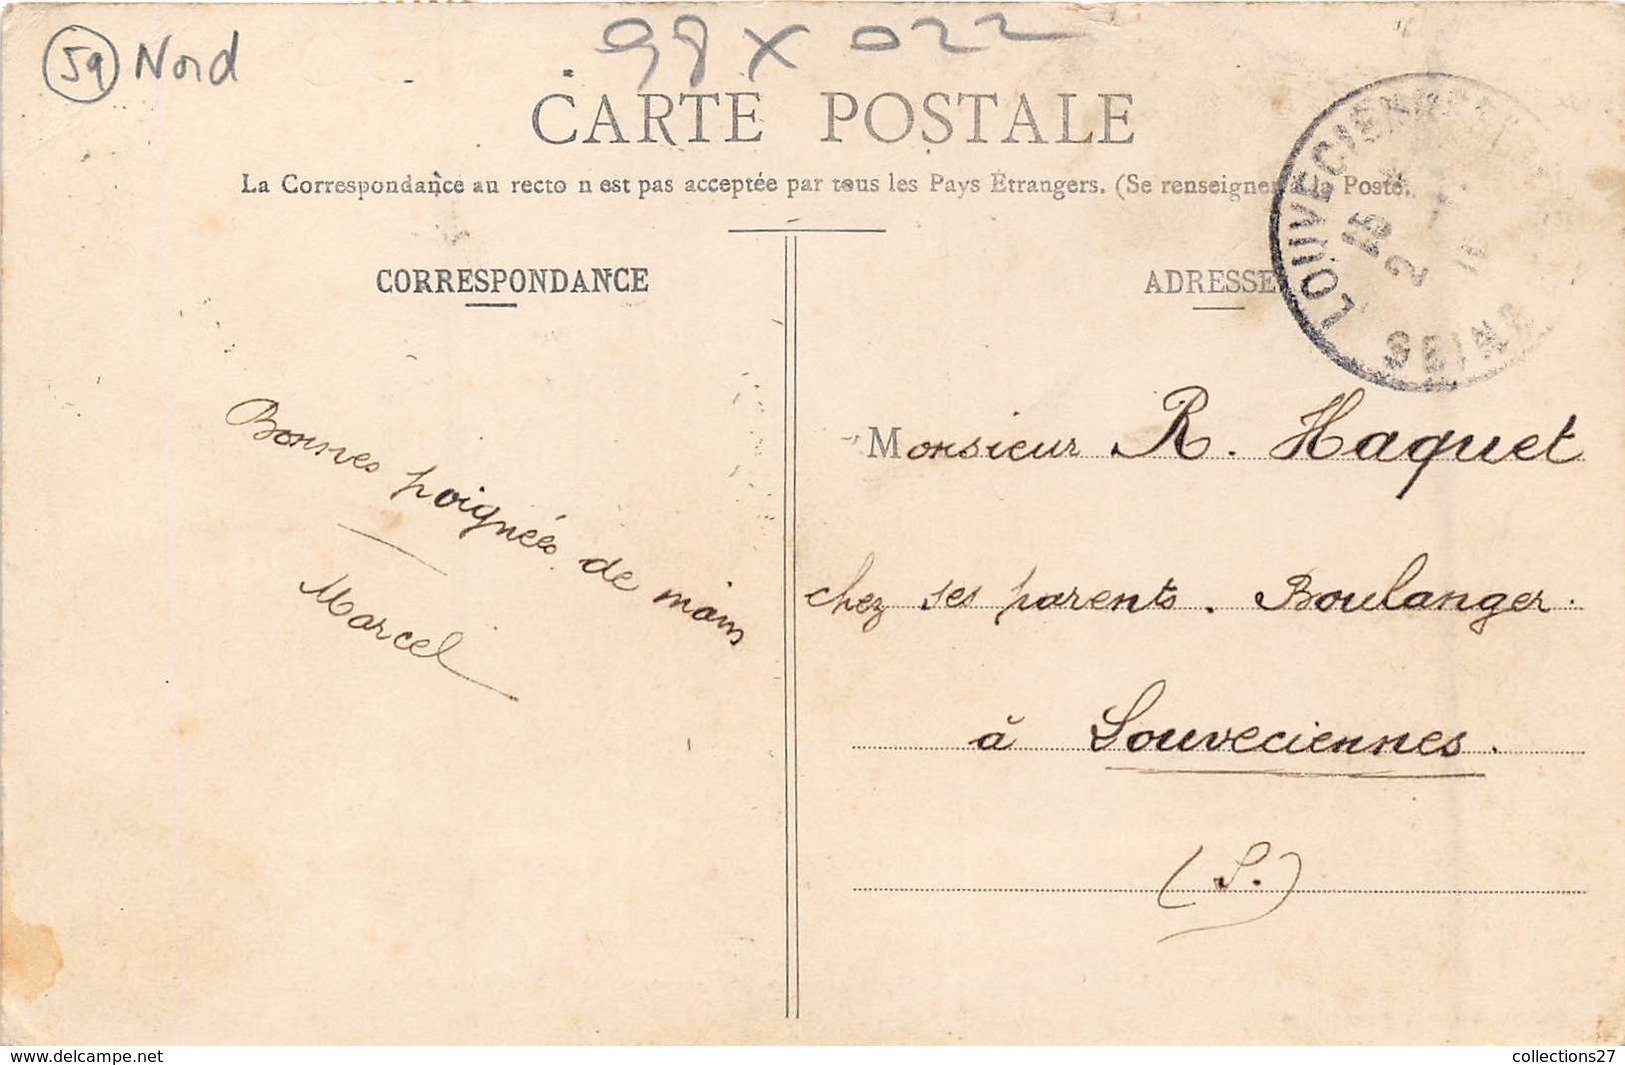 59 Nord
98 X 022
CARTE POSTALE
La Correspondance au recto n est pas acceptée par tous les Pays Étrangers. (Se renseigner à la Poste.
CORRESPONDANCE
Bonnes poignées de mains
Marcel
ADRESSE
LOUVECIENNES
15
2
SEINE
Monsieur R. Haquet
chez ses parents. Boulanger.
à Louveciennes.
(S.)
www.delcampe.net
collections27